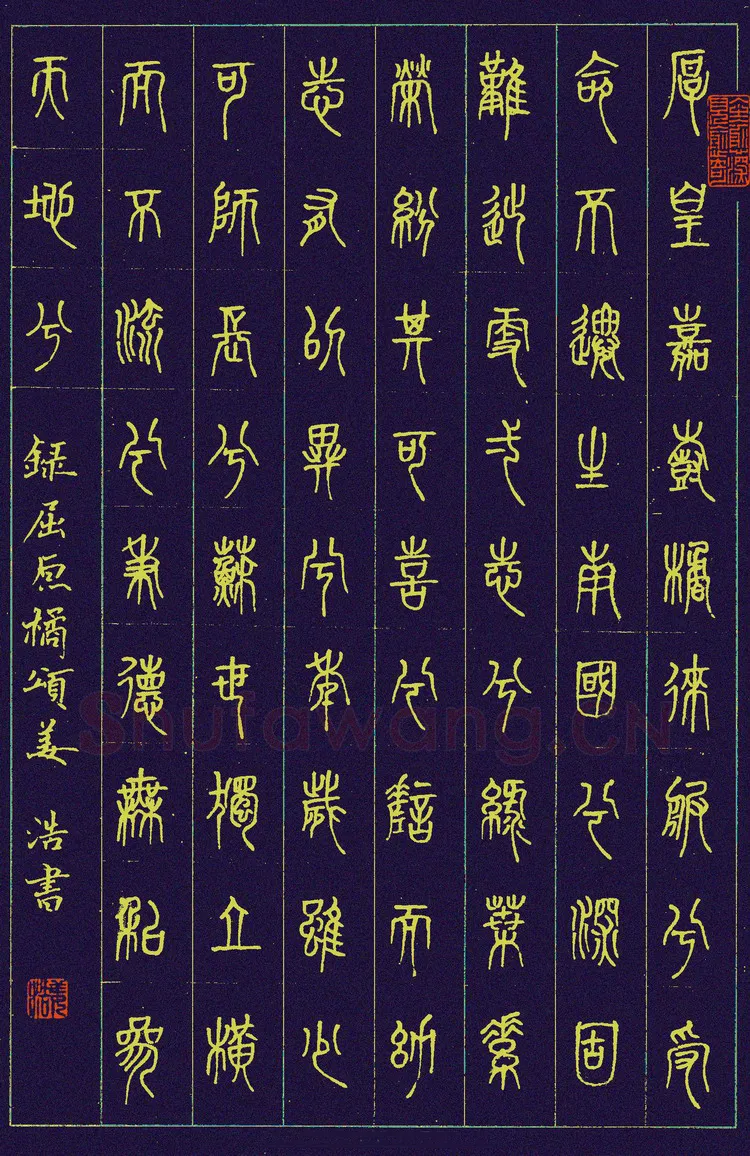 厚皇嘉樹橘徠服兮受
命不遷生南國兮深固
難徙更弌志兮綠葉素
榮紛其可喜兮嗟而幼
志有以異兮年歲雖少
可師長兮蘇世獨立橫
而不流兮秉德無私參
天地兮
錄屈原橘頌姜浩書
姜浩
Shufawang.CN